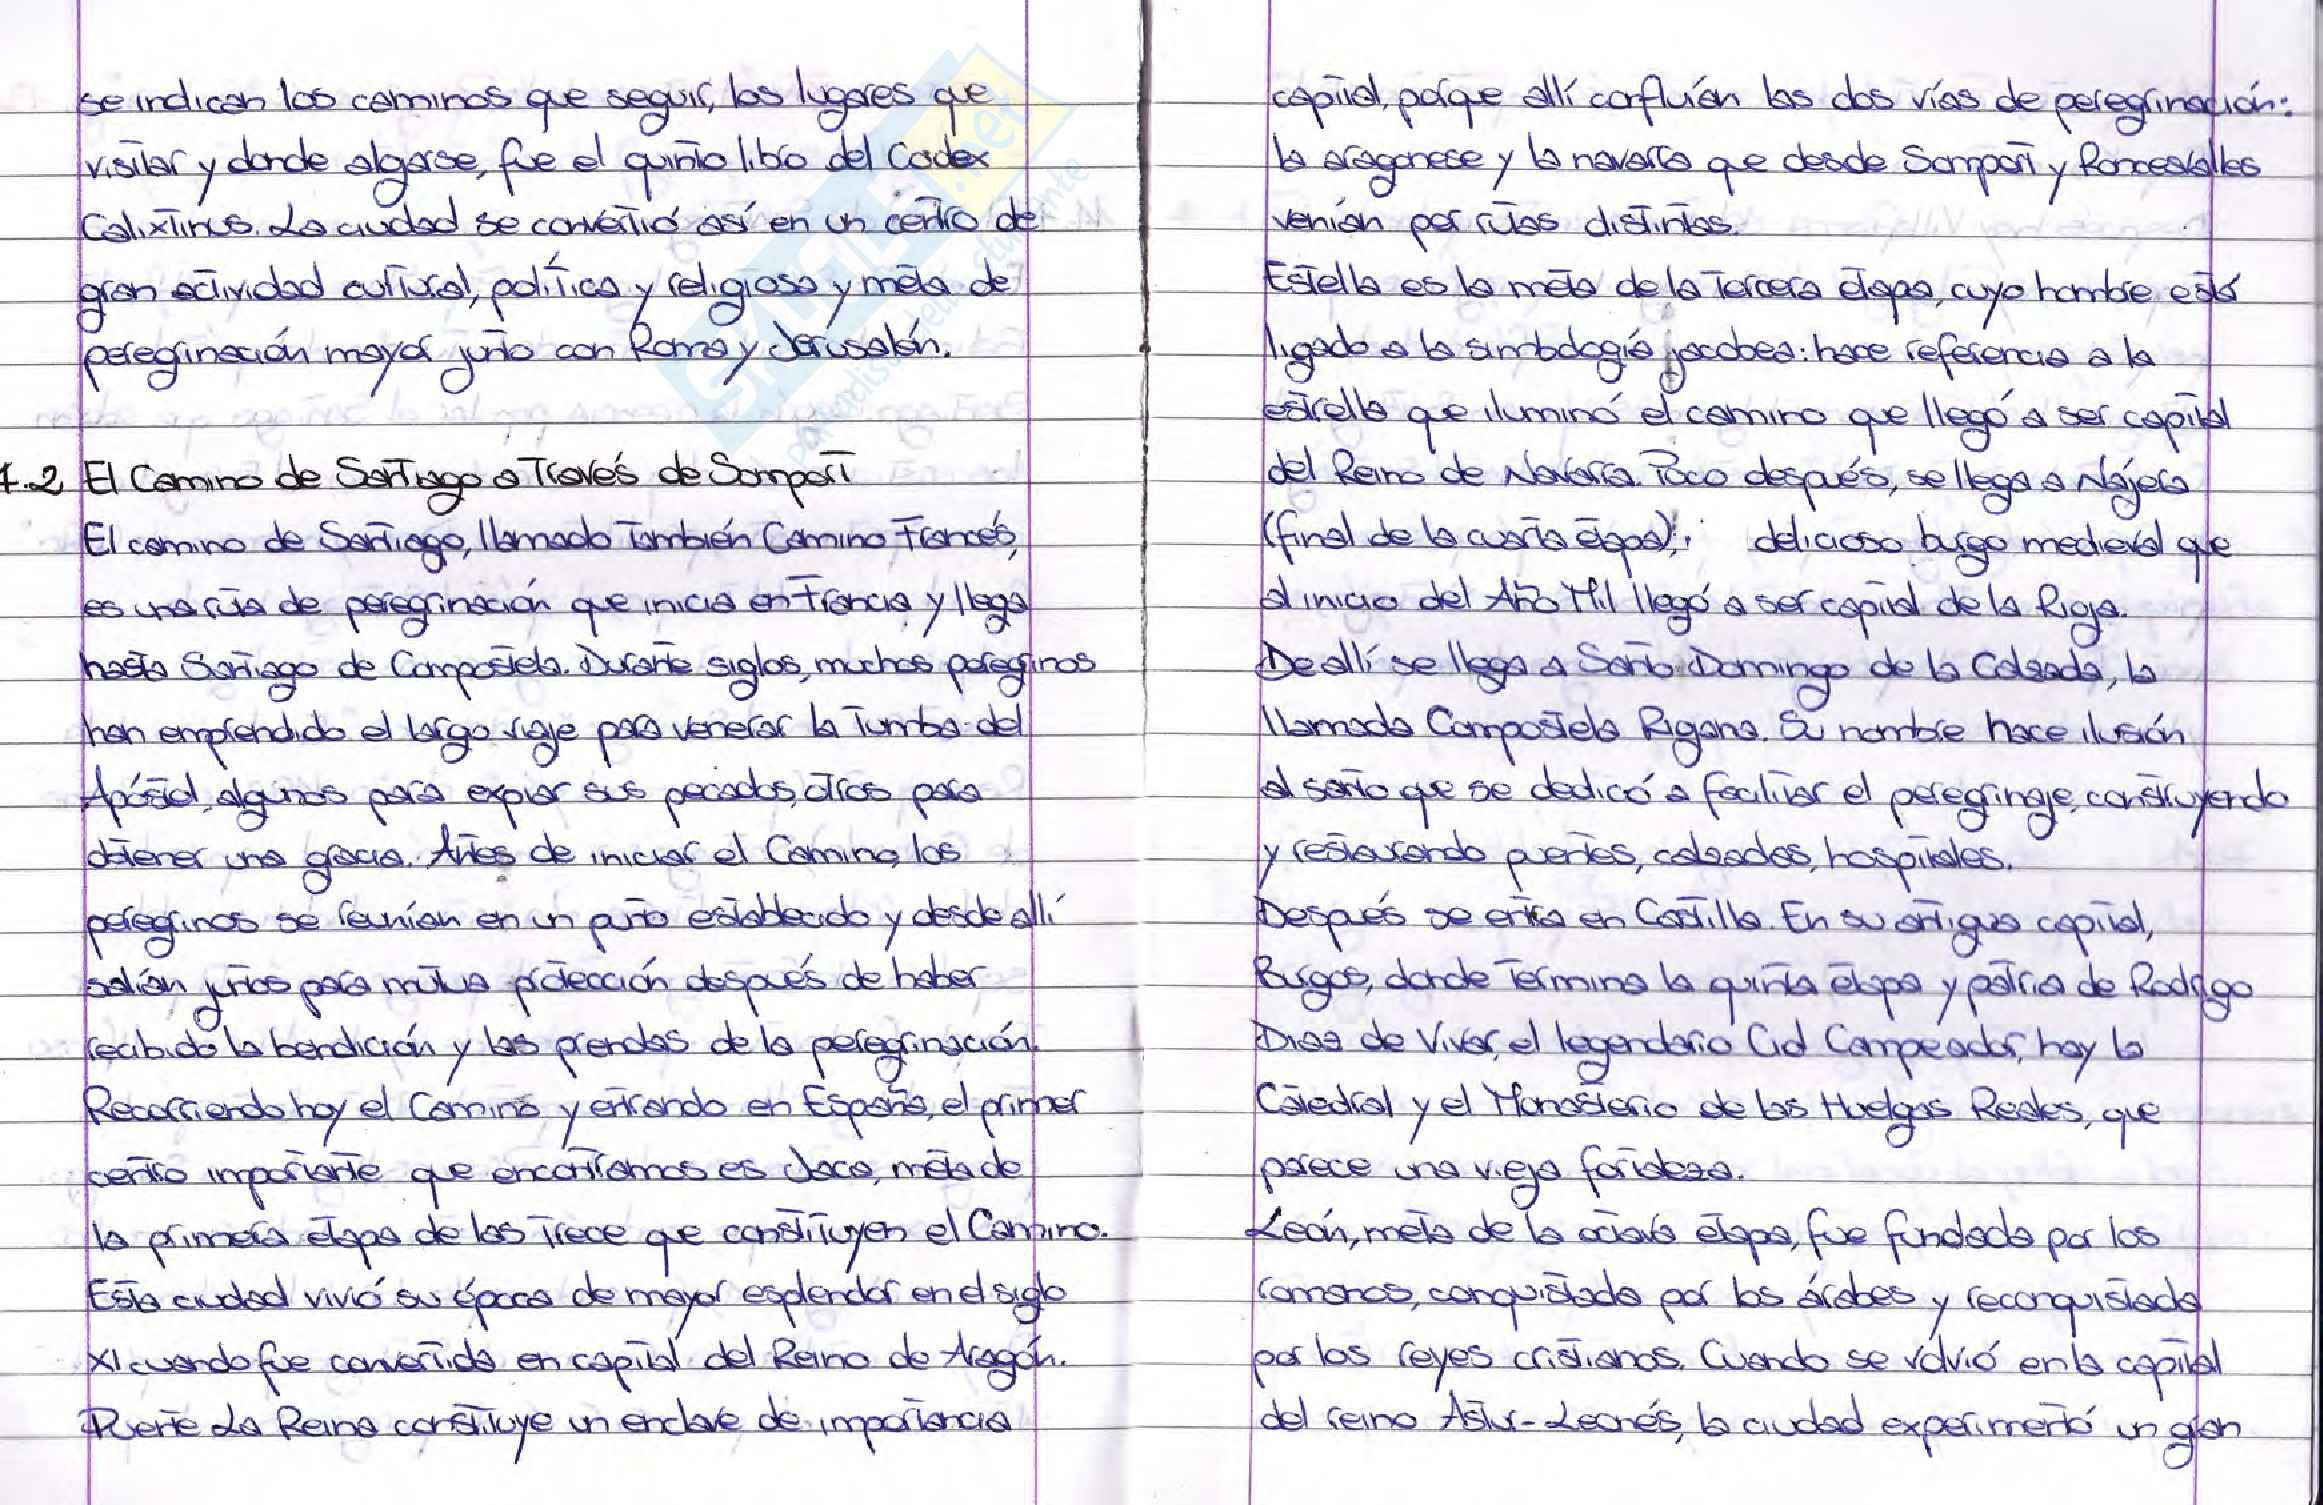 se indican los caminos que seguir, los lugares que
visitar y donde algarse, fue el quinto libro del Codex
Calixtinus. La ciudad se convertió así en un centro de
gran actividad cultural, política y religiosa y meta de
peregrinación mayor junto con Roma y Jerusalén.
1.2 El Camino de Santiago a Través de Somport
El camino de Santiago, llamado también Camino Francés,
es una ruta de peregrinación que inicia en Francia y llega
hasta Santiago de Compostela. Durante siglos, muchos peregrinos
han emprendido el largo viaje para venerar la tumba del
Apóstol, algunos para expiar sus pecados, otros para
obtener una gracia. Antes de iniciar el Camino, los
peregrinos se reunían en un punto establecido y desde allí
salían juntos para mutua protección después de haber
recibido la bendición y las prendas de la peregrinación.
Recorriendo hoy el Camino y entrando en España, el primer
centro importante que encontramos es Jaca, meta de
la primera etapa de las trece que constituyen el Camino.
Esta ciudad vivió su época de mayor esplendor en el siglo
XI cuando fue convertida en capital del Reino de Aragón.
Puente La Reina constituye un enclave de importancia
capital, porque allí confluían las dos vías de peregrinación:
la aragonese y la navarra que desde Somport y Roncesvalles
venían por rutas distintas.
Estella es la meta de la tercera etapa, cuyo nombre está
ligado a la simbología jacobea: hace referencia a la
estrella que iluminó el camino que llegó a ser capital
del Reino de Navarra. Poco después, se llega a Nájera
(final de la cuarta etapa), delicioso burgo medieval que
al inicio del Año Mil llegó a ser capital de la Rioja.
De allí se llega a Santo Domingo de la Calzada, la
llamada Compostela Rigana. Su nombre hace ilusión
al santo que se dedicó a facilitar el peregrinaje, construyendo
y restaurando puentes, calzadas, hospitales.
Después se entra en Castilla. En su antigua capital,
Burgos, donde termina la quinta etapa y patria de Rodrigo
Diaz de Vivar, el legendario Cid Campeador, hay la
Catedral y el Monasterio de las Huelgas Reales, que
parece una vieja fortaleza.
León, meta de la octava etapa, fue fundada por los
romanos, conquistada por los árabes y reconquistada
por los reyes cristianos. Cuando se volvió en la capital
del reino Astur-Leonés, la ciudad experimentó un gran